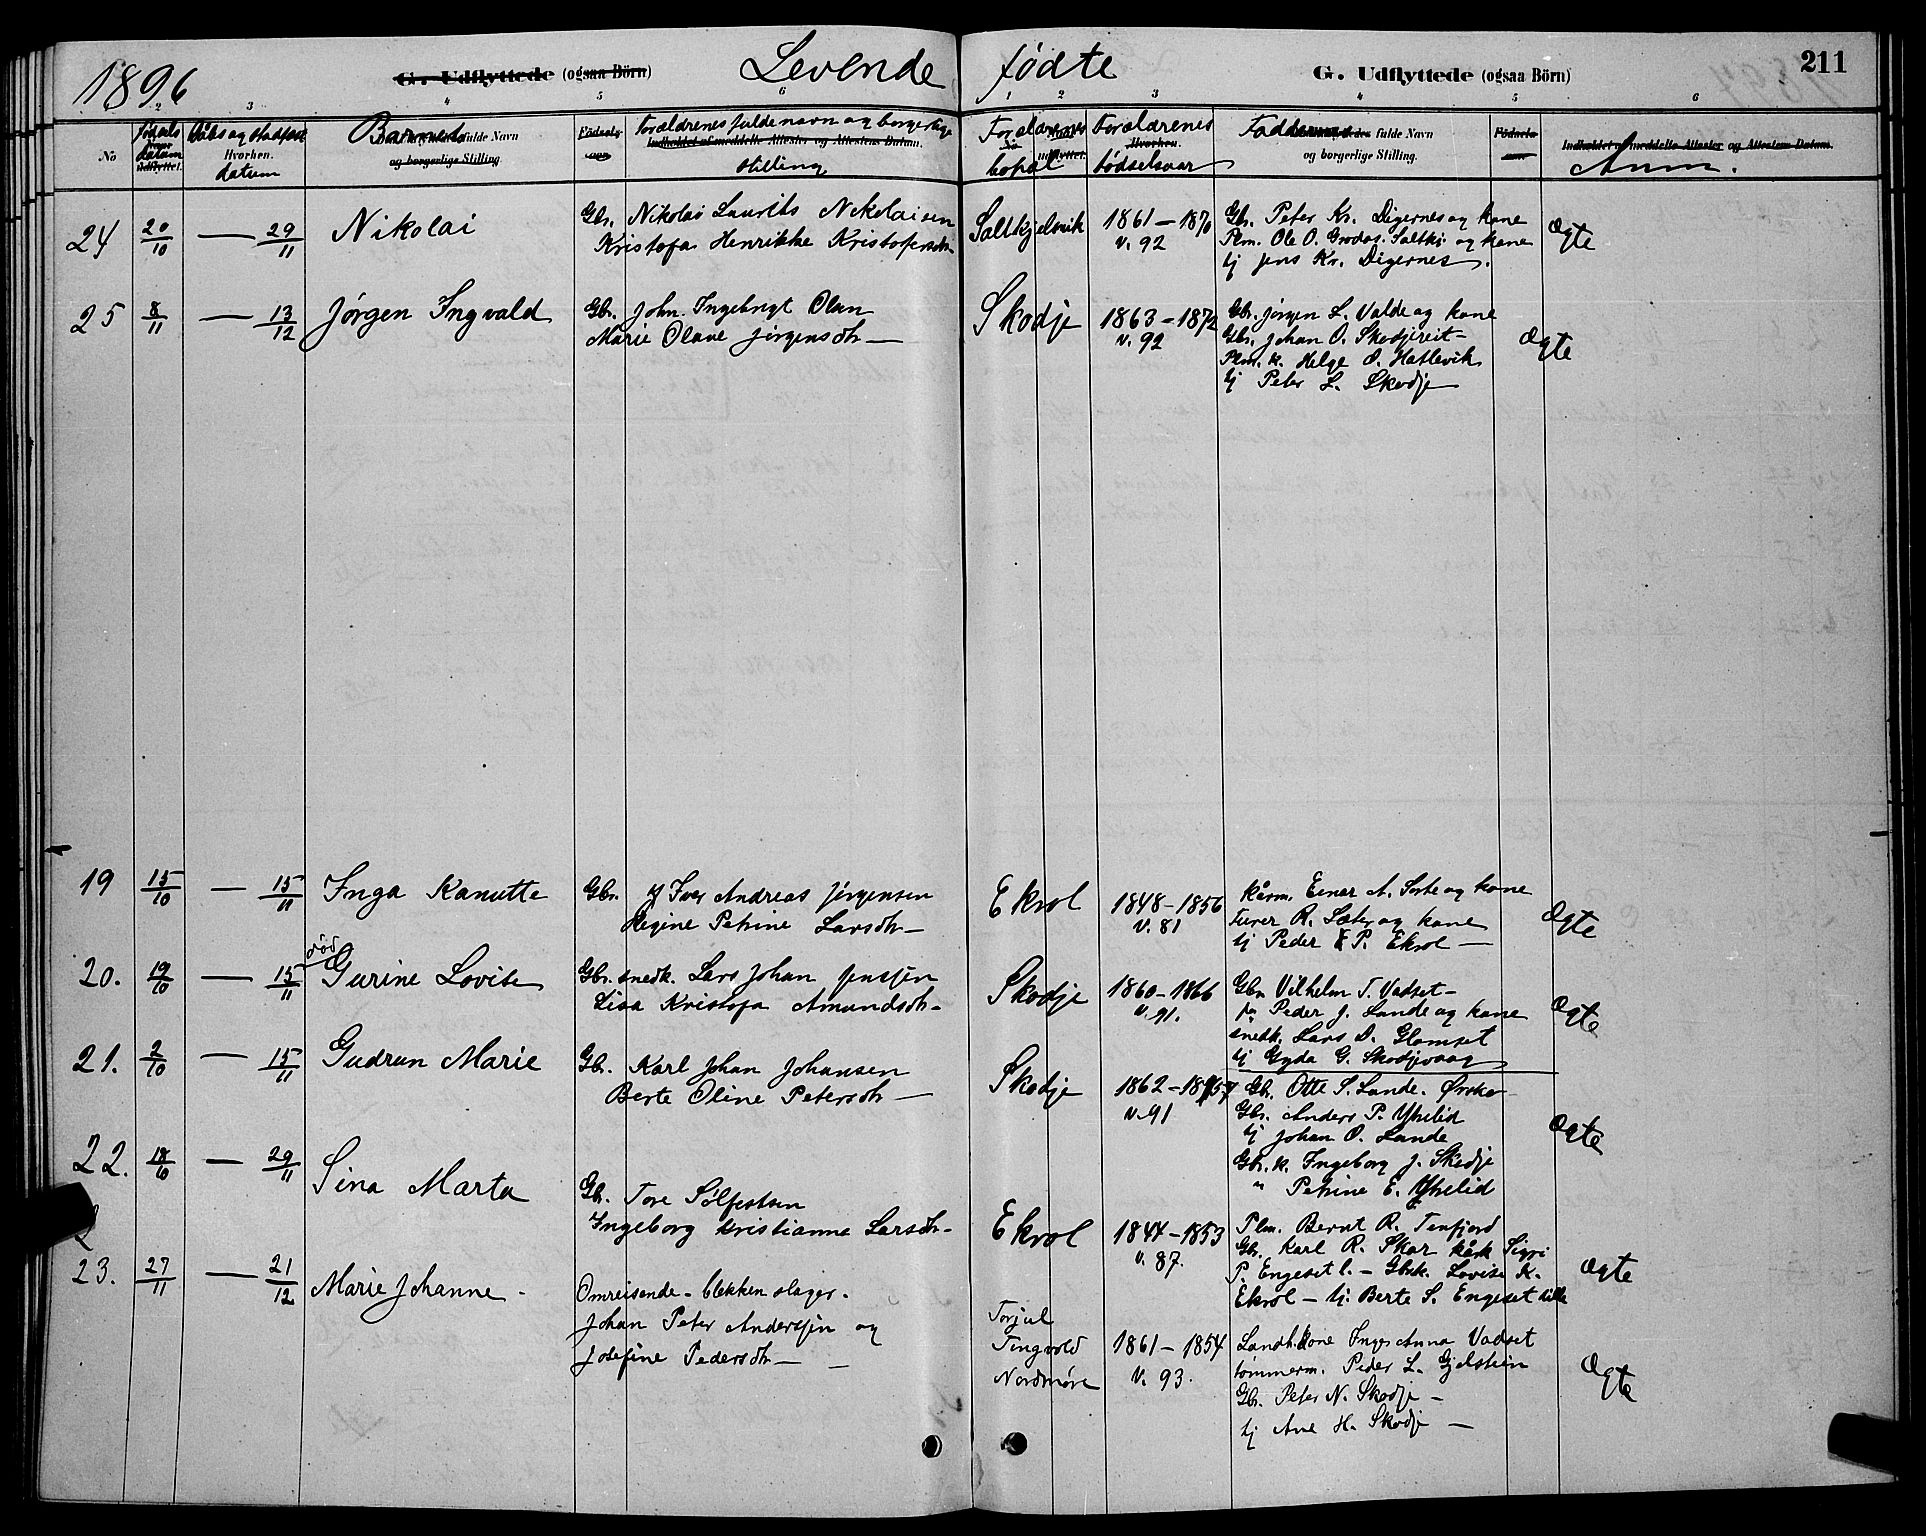 1896
G. Udflyttede (ogsaa Börn)
Levende fødte
G. Udflyttede (ogsaa Börn)
211
2 3 4 5 6 1 2 3 4 5 6
No
fødsels datum
Hvorhen.
datum
Barnets fulde Navn
og borgerlige Stilling.
Forældrenes fulde navn og borgerlige
Indholdet af meddelte Attester og Attestens Datum.
stilling
Forældrenes
bopæl
Forældrenes
Hvorhen.
fødselsaar
Faddernes fulde Navn
og borgerlige Stilling.
Indholdet af meddelte Attester og Attestens Datum.
Anm.
24 20/10 — 29/11 Nikolai
Gbr. Nikolai Laurits Nikolaisen
Kristofa Henrikke Kristofersdtr
Saltkjelsvik
1861 – 1870
v. 92
Gbr. Peter Kr. Digernes og kone
Plm. Ole O. Grodas. Saltkj. og kone
tj Jens Kr. Digernes.
Ægte
25 8/11 — 13/12 Jørgen Ingvald
Gbr. John Ingebrigt Olsen
Marie Olave Jørgensdtr —
Skodje
1863 – 1872
v. 92
Gbr. Jørgen L. Valde og kone
Gbr. Johan O. Skodjereit –
Plm. k. Helge O. Hatlevik
tj Peter L. Skodje
Ægte
19 15/10 — 15/11 Inga Kanutte
Gbr. Iver Andreas Jørgensen
Regine Petrine Larsdtr —
Ekrol
1848 – 1856
v. 81
kårm. Einar A. Sorte og kone
R. Sæter og kone
tj Peder P. Ekrol —
Ægte
20. 19/10 — 15/11 død Gurine Lovise
Gbr. snedk. Lars Johan Jensen
Lisa Kristofa Amundsdtr –
Skodje
1860 – 1866
v. 91.
Gbr Vilhelm T. Vadset –
Peder J. Lande og kone
snedk. Lars D. Glomset
tj Gyda G. Skodjevaag
Ægte
21. 2/10 — 15/11 Gudrun Marie
Gbr. Karl Johan Johansen
Berte Oline Petersdtr —
Skodje
1862 – 1857
v. 91
Gbr. Otte S. Lande. Ørsko
Gbr. Anders P. Ytrelid
tj Johan O. Lande
Gbr. k. Ingeborg J. Skodje
" Petrine E. Ytrelid
Ægte
22. 18/10 — 29/11 Sina Marta
Gbr. Tore Sølfestsen
Ingeborg Kristianne Larsdtr –
Ekrol
1844 – 1853
v. 87.
Plm. Bernt R. Tenfjord
Gbr. Karl R. Skar kårk Sigri
P. Engeset l. – Gbrk. Lovise K.
Ekrol – tj. Berte S. Engeset lille
Ægte
23. 27/11 — 21/12 Marie Johanne –
Omreisende – blikkenslager.
Johan Peter Anderssen og
Josefine Pedersdtr — –
Torjul
Tingvold
Nordmøre
1861 – 1854
v. 93.
Landh. kone Inger Anna Vadset
tømmerm. Peder L. Gjelstein
Gbr. Peter N. Skodje –
tj Ane H. Skodje —
Ægte